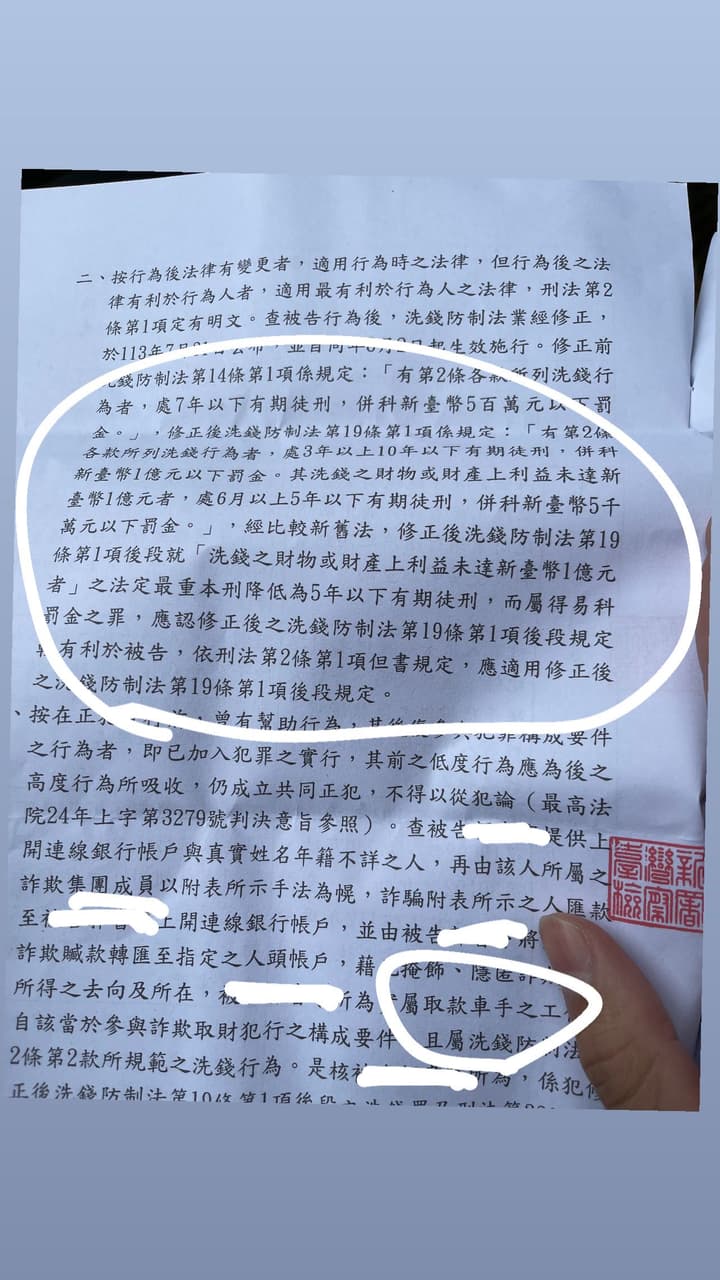 二、按行為後法律有變更者，適用行為時之法律，但行為後之法
律有利於行為人者，適用最有利於行為人之法律，刑法第2
條第1項定有明文。查被告行為後，洗錢防制法業經修正，
於113年7月31日公布，並自同年8月2日起生效施行。修正前
洗錢防制法第14條第1項係規定：「有第2條各款所列洗錢行
為者，處7年以下有期徒刑，併科新臺幣5百萬元以下罰
金。」，修正後洗錢防制法第19條第1項係規定：「有第2條
各款所列洗錢行為者，處3年以上10年以下有期徒刑，併科
新臺幣1億元以下罰金。其洗錢之財物或財產上利益未達新
臺幣1億元者，處6月以上5年以下有期徒刑，併科新臺幣5千
萬元以下罰金。」，經比較新舊法，修正後洗錢防制法第19
條第1項後段就「洗錢之財物或財產上利益未達新臺幣1億元
者」之法定最重本刑降低為5年以下有期徒刑，而屬得易科
罰金之罪，應認修正後之洗錢防制法第19條第1項後段規定
有利於被告，依刑法第2條第1項但書規定，應適用修正後
之洗錢防制法第19條第1項後段規定。
、按在正犯行為，曾有幫助行為，其後復參與犯罪構成要件
之行為者，即已加入犯罪之實行，其前之低度行為應為後之
高度行為所吸收，仍成立共同正犯，不得以從犯論（最高法
院24年上字第3279號判決意旨參照）。查被告提供上
開連線銀行帳戶與真實姓名年籍不詳之人，再由該人所屬之
詐欺集團成員以附表所示手法為幌，詐騙附表所示之人匯款
至上開連線銀行帳戶，並由被告將
詐欺贓款轉匯至指定之人頭帳戶，藉掩飾、隱匿詐
所得之去向及所在，所為屬取款車手之工
自該當於參與詐欺取財犯行之構成要件，且屬洗錢防制法
2條第2款所規範之洗錢行為。是核所為，係犯修
正後洗錢防制法第19條第1項後段之洗錢罪及刑法第